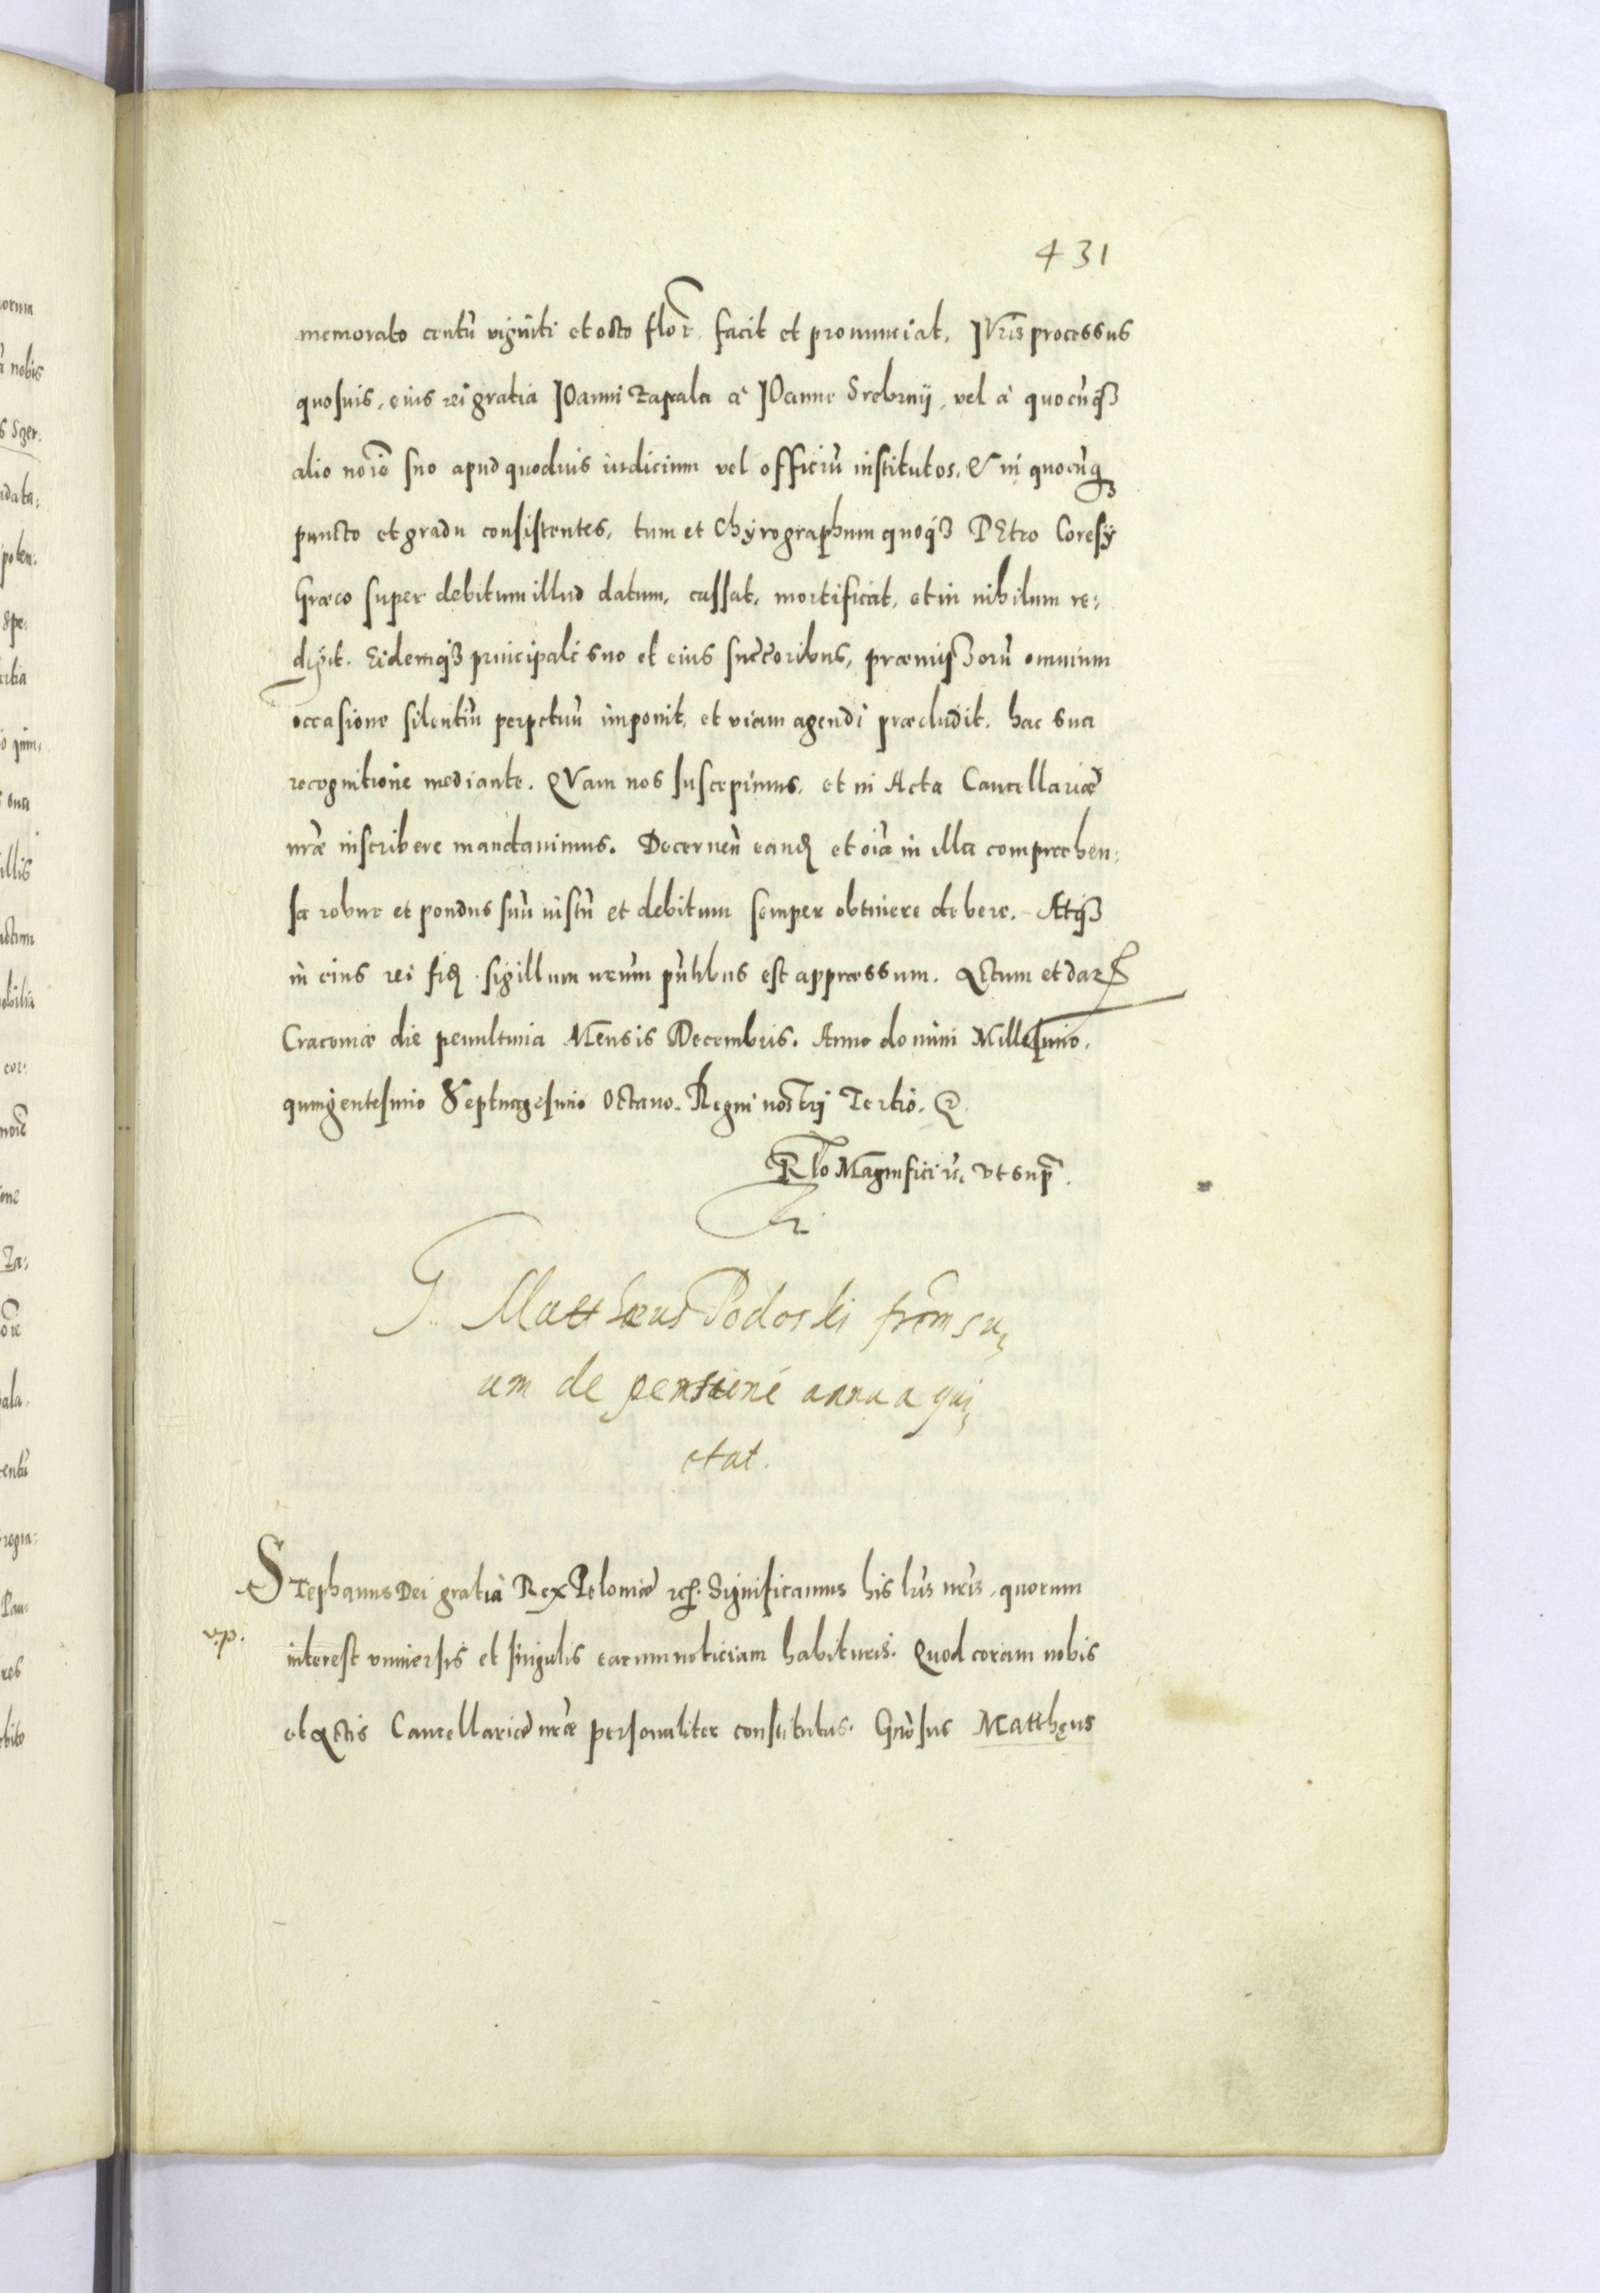 431
memorato centũ viginti et octo flor̃. facit et pronunciat. IVris processus
quosuis, eius rei gratia IOanni Zapala à IOanne Srebrny, vel à quocũq3
alio noı̃e suo apud quoduis iudicium vel officiũ institutos, & in quocũq3
puncto et gradu consistentes, tum et Chyrographum quoq3 PEtro Coresÿ
Græco super debitum illud datum, cassat, mortificat, et in nihilum re:
digit. Eidemq3 principali suo et eius succ̃oribus, præmissorũ omnium
occasione silentiũ perpetuũ imponit, et viam agendi præcludit. hac sua
recognitione mediante. QVam nos suscepimus, et in Acta Cancellariæ
nr̃æ inscribere mandauimus. Decernen̄ eand̃ et oı̃a in illa comprehen:
sa robur et pondus suũ iustũ et debitum semper obtinere debere. Atq3
in eius rei fid̃. sigillum nr̃um pñtibus est appressum. Actum et dat̃
Cracouiæ die penultima MEnsis Decembris. Anno domini Millesimo.
quingentesimo Septuagesimo Octauo. Regni nostri Tertio. &
Rlo Magnifici vt sup̃.
G. Matthæus Podoski fr̃em su,
um de pensione annua qui,
etat.
STephanus Dei gratia Rex Poloniæ etc̃. Significamus his lr̃is nr̃is, quorum
vp.
interest vniuersis et singulis earum noticiam habituris. Quod coram nobis
et Actis Cancellariæ nr̃æ personaliter constitutus. Gnõsus Matthęus